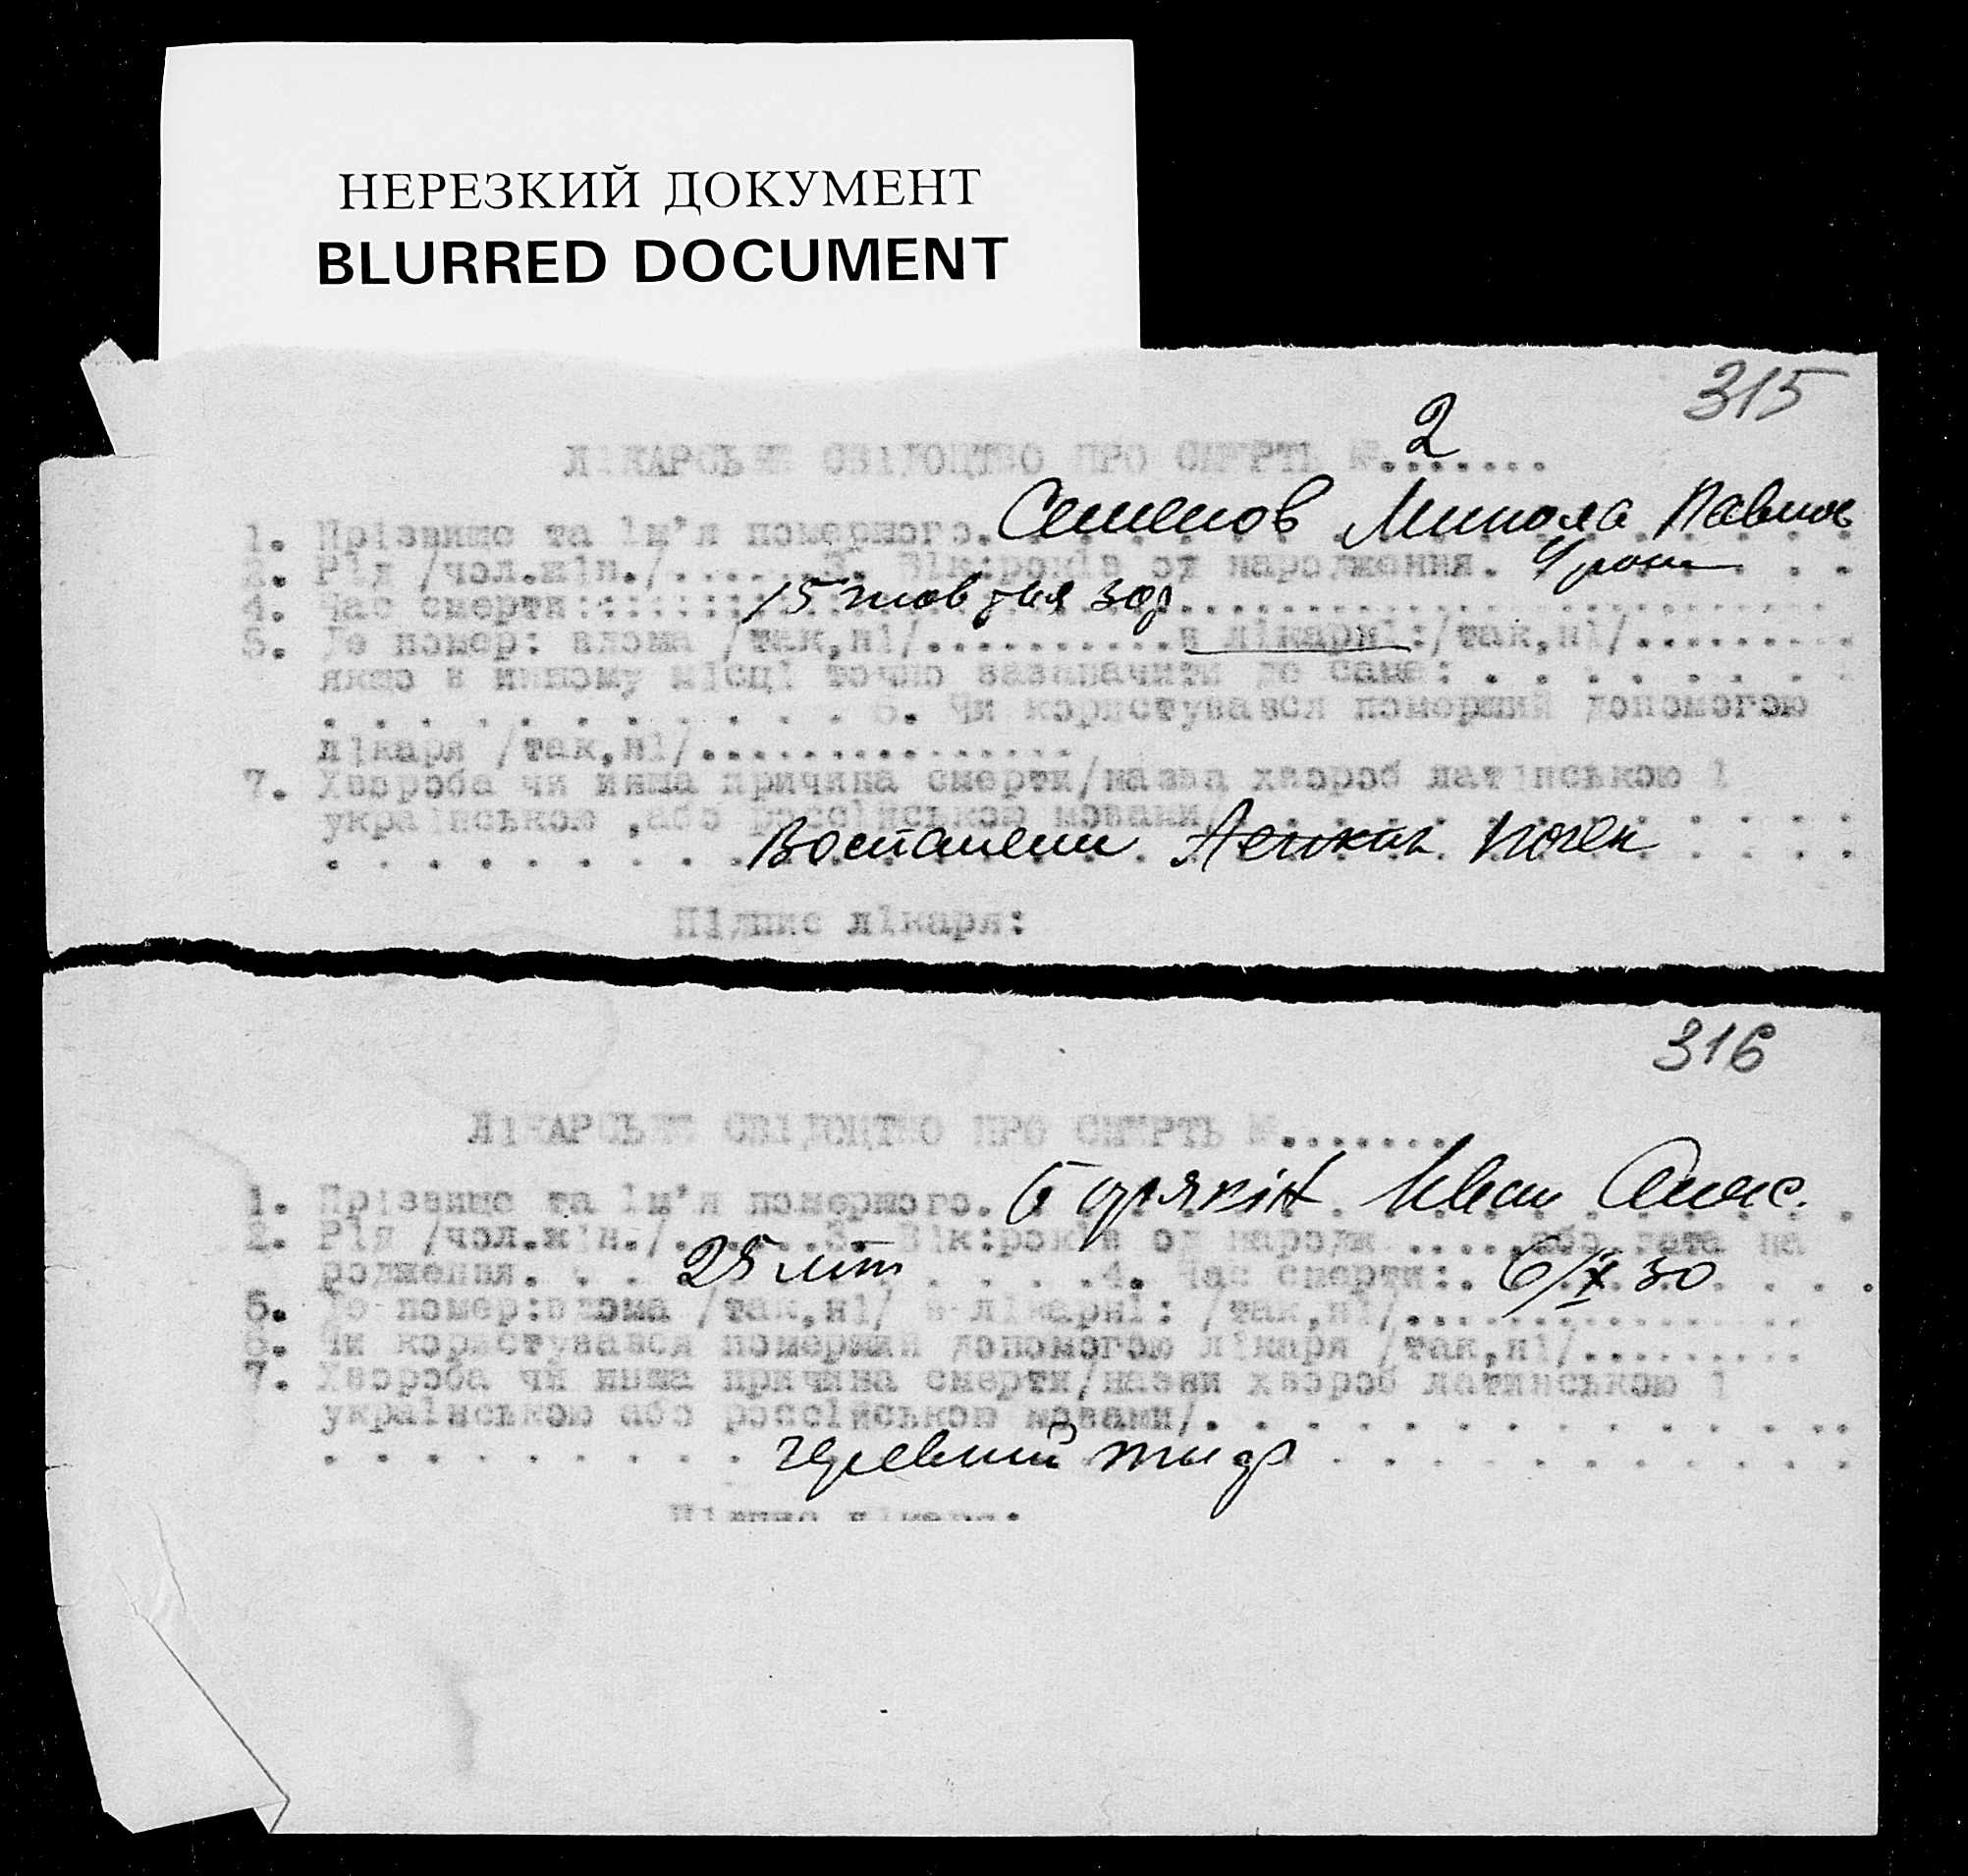 НЕРЕЗКИЙ ДОКУМЕНТ
BLURRED DOCUMENT
315
ЛІКАРСЬКЕ СВІДОЦТВО ПРО СМЕРТЬ №.......
2
1. Прізвище та ім'я померного. Семенов Микола Павлов
2. Рід /чол.жін./.......3. Вік:років од народження. 4 роки
4. Час смерти: 15 жовтня 30р
5. Де помер: вдома /так,ні/..........в лікарні:/так,ні/.........
якщо в иншому місці точно зазначити де саме: . . . . . . . .
. . . . . . . . . . 6. Чи користувався померший допомогою
лікаря /так,ні/...............
7. Хвороба чи инша причина смерти/назва хвороб латінською і
українською ,або російською мовами/. . . . . . . . . . . .
. . . . . . . . Почек
Підпис лікаря:
316
ЛІКАРСЬКЕ СВІДОЦТВО ПРО СМЕРТЬ №.......
1. Прізвище та ім'я померного. Іван
2. Рід /чол.жін./.......3. Вік:років од народж .....або дата на
родження. . . 25 літ . . . .4. Час смерти:. 6/X 30
5. Де помер:вдома /так,ні/ в лікарні: /так,ні/...............
6. Чи користувався померший допомогою лікаря /так,ні/.........
7. Хвороба чи инша причина смерти/назви хвороб латинською і
українською або російською мовами/. . . . . . . . . . . .
. . . . . . . . черевний тиф
Підпис лікаря: